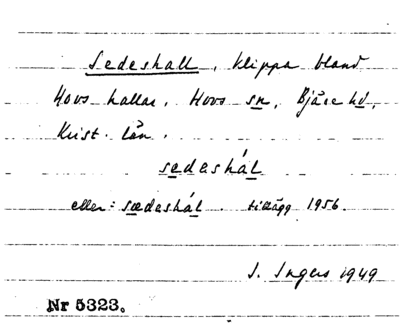 Sedeshall, klippa bland
Hovs hallar, Hovs sn, Bjäre hd,
Krist. län.
sedeshál
eller: sædeshál. tillägg 1956.
I. Ingers 1949
Nr 5323.